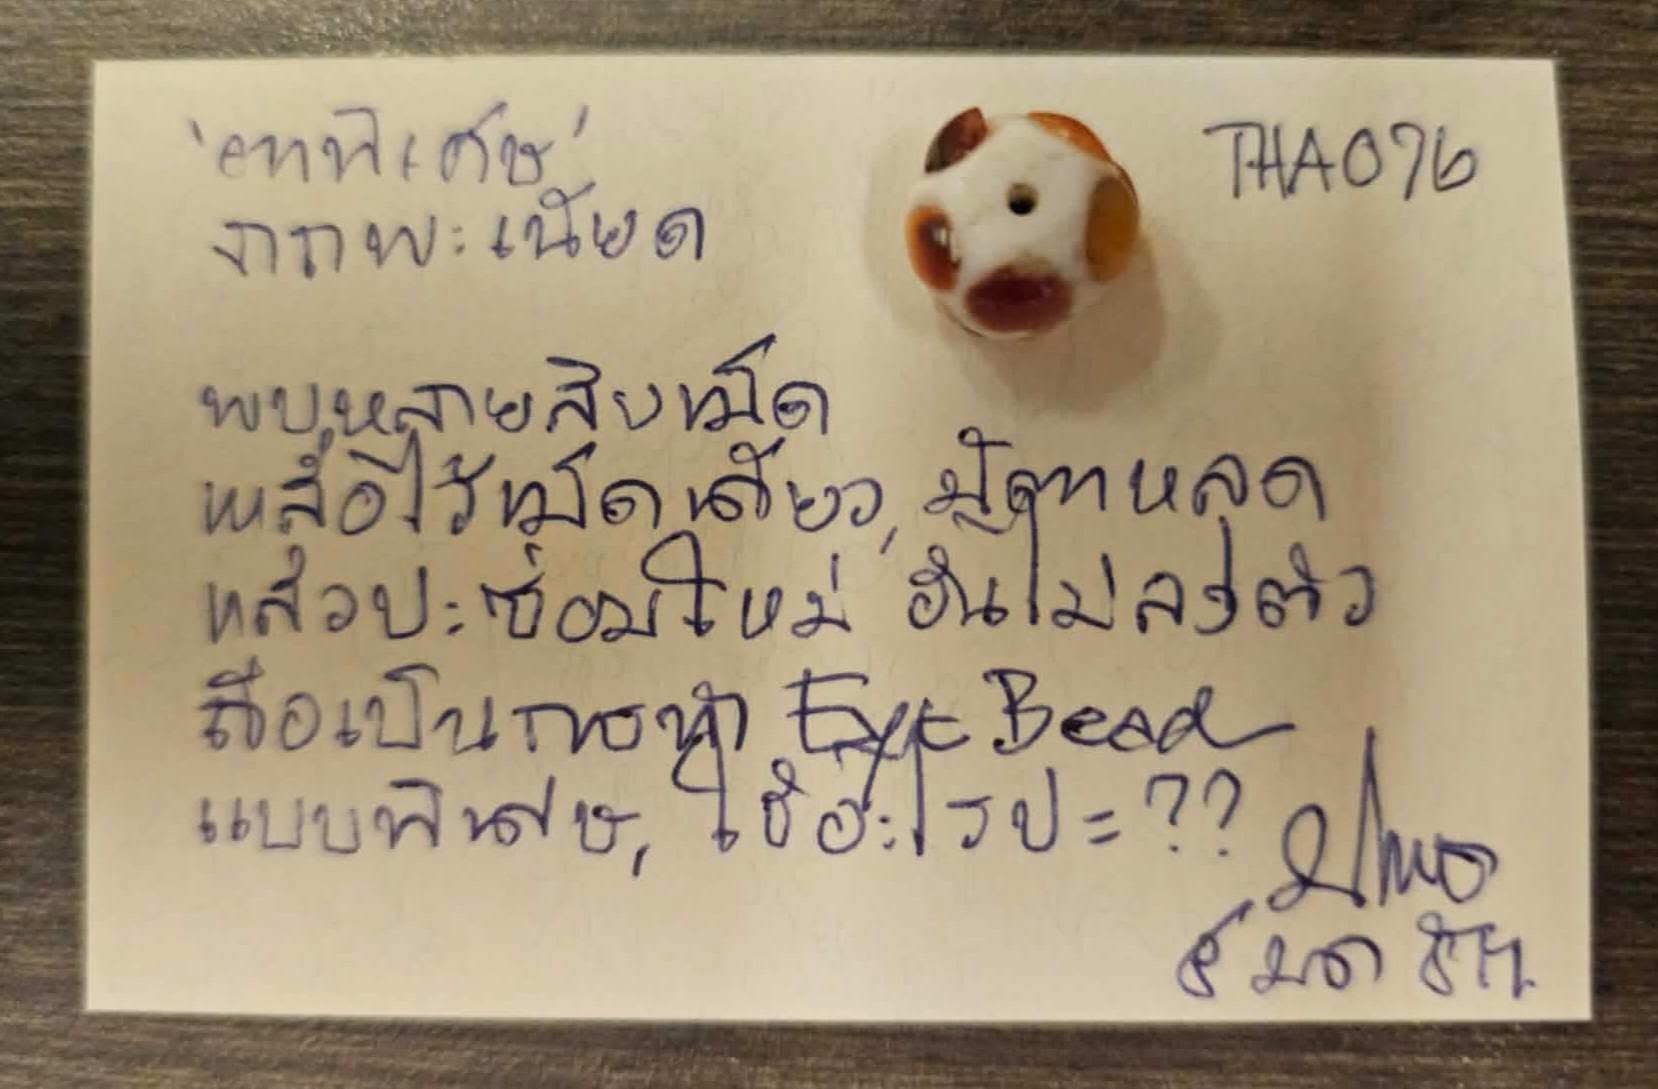 'ตาพิเศษ'
THA076
ภูเขา
พบหลายสิบเม็ด
เหลือไว้เม็ดเดียว, มีตาหลุด
แล้วปะซ่อมใหม่ อันไม่ลงตัว
ถือเป็นการทำ Eye Bead
แบบพิเศษ, ใช้อะไรปะ??